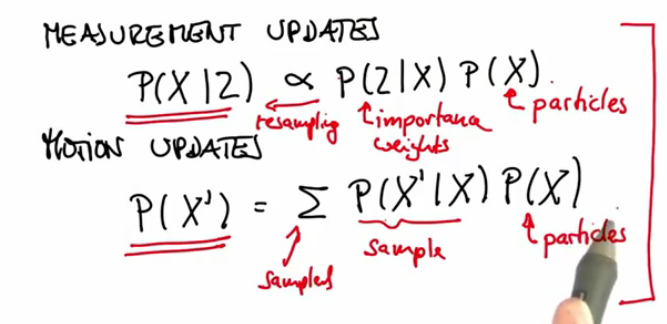 MEASUREMENT UPDATES
P(X|Z) ∝ P(Z|X) P(X).
resampling importance weights particles
MOTION UPDATES
P(X') = Σ P(X'|X) P(X)
samples sample particles